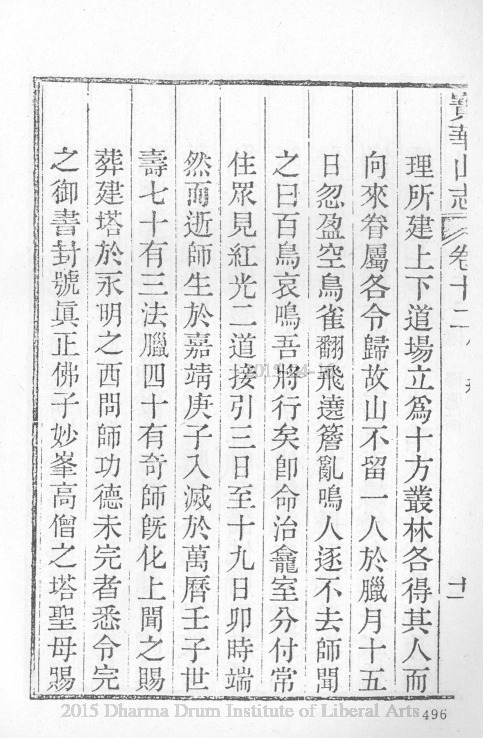 寶華山志 卷十二 十二
理所建上下道場立爲十方叢林各得其人而
向來眷屬各令歸故山不留一人於臘月十五
日忽盈空鳥雀翻飛遶簷亂鳴人逐不去師聞
之曰百鳥哀鳴吾將行矣卽命治龕室分付常
住眾見紅光二道接引三日至十九日卯時端
然而逝師生於嘉靖庚子入滅於萬曆壬子世
壽七十有三法臘四十有奇師旣化上聞之賜
葬建塔於永明之西問師功德未完者悉令完
之御書封號眞正佛子妙峯高僧之塔聖母賜
2015 Dharma Drum Institute of Liberal Arts
496